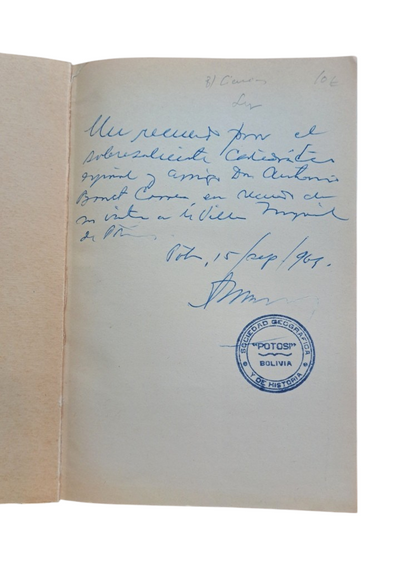 Un recuerdo para el
sobresaliente Catedrático
español y amigo Don Antonio
Bonet Correa, en recuerdo de
su visita a la Villa Imperial
de
Pot., 15/sep/
SOCIEDAD GEOGRAFICA
"POTOSI"
BOLIVIA
Y DE HISTORIA